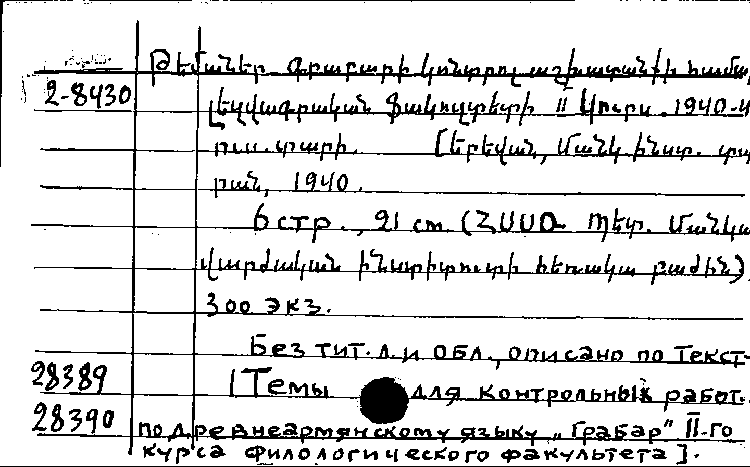 Թեմաներ գրաբարի կոնտրոլ աշխատանքի համար
2-8430 լեզվագրական ֆակուլտետի II կուրս. 1940-4
ուս. տարի. [Երևան, Մանկ. ինստ. տպա
րան, 1940.
6 стр., 21 см. (ՀՍՍՌ Պետ. Մանկա
վարժական ինստիտուտի հեռակա բաժին)
300 экз.
Без тит. л. и обл., описано по текст-
28389 [Темы для контрольных работ.
28390 по древнеармянскому языку „Грабар" II-го
курса филологического факультета].